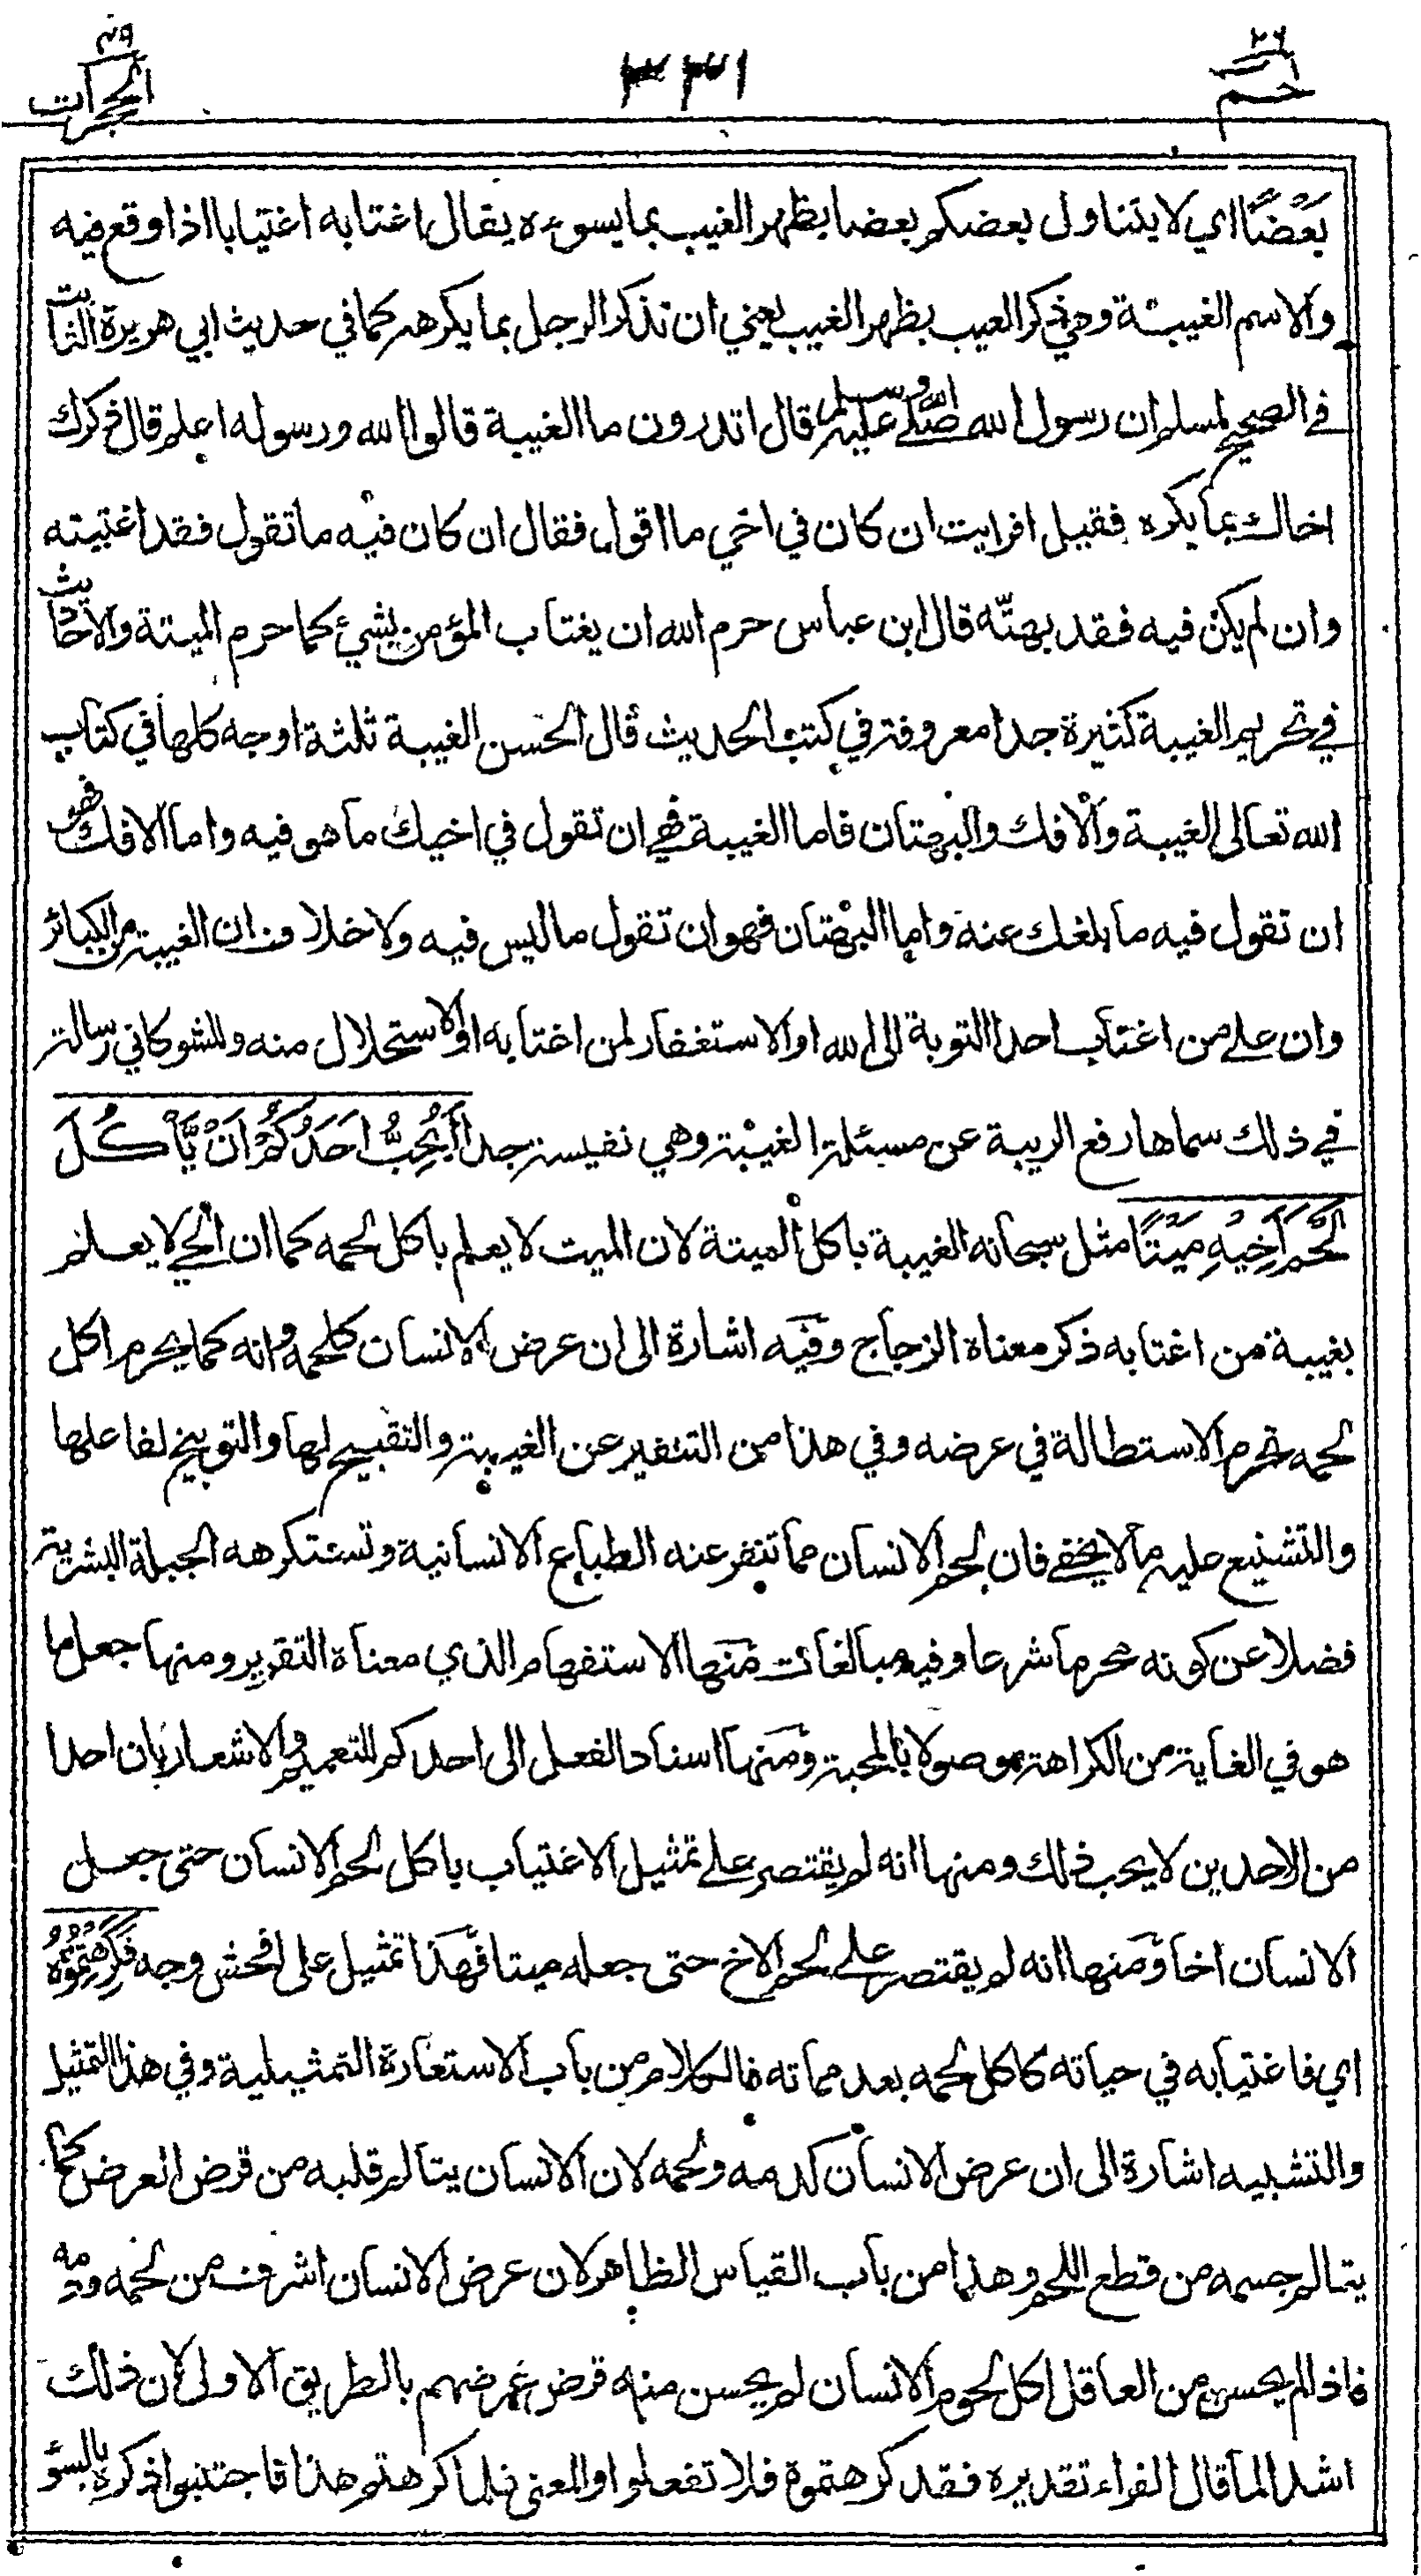 ٢٦
حم
٣٣١
٤٩
الحجرات
بَعْضًا اي لا يتناول بعضكم بعضا بظهر الغيب بما يسوءه يقال اغتابه اغتيابا اذا وقع فيه
والاسم الغيبة وهي ذكر العيب بظهر الغيب يعني ان تذكر الرجل بما يكرهه كما في حديث ابي هريرة الثابت
في الصحيح لمسلم ان رسول الله صلى الله عليه وسلم قال اتدرون ما الغيبة قالوا الله ورسوله اعلم قال ذكرك
اخاك بما يكره فقيل افرايت ان كان في اخي ما اقول فقال ان كان فيه ما تقول فقد اغتبته
وان لم يكن فيه فقد بهتّه قال ابن عباس حرم الله ان يغتاب المؤمن بشيء كما حرم الميتة والاحاديث
في تحريم الغيبة كثيرة جدا معروفة في كتب الحديث قال الحسن الغيبة ثلثة اوجه كلها في كتاب
الله تعالى الغيبة والافك والبهتان فاما الغيبة فهي ان تقول في اخيك ما هو فيه واما الافك فهو
ان تقول فيه ما بلغك عنه واما البهتان فهو ان تقول ما ليس فيه ولا خلاف ان الغيبة من الكبائر
وان على من اغتاب احدا التوبة الى الله او الاستغفار لمن اغتابه او الاستحلال منه وللشوكاني رسالة
في ذلك سماها رفع الريبة عن مسئلة الغيبة وهي نفيسة جدا أَيُحِبُّ اَحَدُكُمْ اَنْ يَّأْكُلَ
لَحْمَ اَخِيْهِ مَيْتًا مثل سبحانه الغيبة باكل الميتة لان الميت لا يعلم باكل لحمه كما ان الحي لا يعلم
بغيبة من اغتابه ذكر معناه الزجاج وفيه اشارة الى ان عرض الانسان كلحمه وانه كما يحرم اكل
لحمه تحرم الاستطالة في عرضه وفي هذا من التنفير عن الغيبة والتقبيح لها والتوبيخ لفاعلها
والتشنيع عليه ما لا يخفى فان لحم الانسان مما تنفر عنه الطبايع الانسانية وتستكرهه الجبلة البشرية
فضلا عن كونه محرما شرعا وفيه مبالغات منها الاستفهام الذي معناه التقرير ومنها جعل ما
هو في الغاية من الكراهة موصولا بالمحبة ومنها اسناد الفعل الى احدكم للتعميم والاشعار بان احدا
من الاحدين لا يحب ذلك ومنها انه لم يقتصر على تمثيل الاغتياب باكل لحم الانسان حتى جعل
الانسان اخا ومنها انه لم يقتصر على لحم الاخ حتى جعله ميتا فهذا تمثيل على افحش وجه فَكَرِهْتُمُوْهُ
اي فاغتيابه في حياته كاكل لحمه بعد مماته فالكلام من باب الاستعارة التمثيلية وفي هذا التمثيل
والتشبيه اشارة الى ان عرض الانسان كدمه ولحمه لان الانسان يتالم قلبه من قرض العرض كما
يتالم جسمه من قطع اللحم وهذا من باب القياس الظاهر لان عرض الانسان اشرف من لحمه ودمه
فاذا لم يحسن من العاقل اكل لحوم الانسان لم يحسن منه قرض عرضهم بالطريق الاولى لان ذلك
اشد الما قال الفراء تقديره فقد كرهتموه فلا تفعلوا والمعنى فلما كرهتم هذا فاجتنبوا ذكره بالسوء